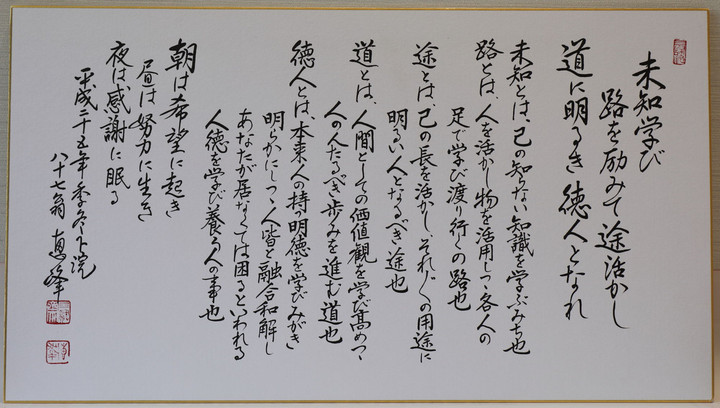 未知学び
路を励みて途活かし
道に明るき徳人となれ
未知とは、己の知らない知識を学ぶみち也
路とは、人を活かし物を活用しつゝ各人の
足で学び渡り行くの路也
途とは、己の長を活かし、それ〳〵の用途に
明るい人となるべき途也
道とは、人間としての価値観を学び高めつゝ
人の人たるべき歩みを進む道也
徳人とは、本来人の持つ明徳を学びみがき
明らかにしつゝ人皆と融合和解し
あなたが居なくては困るといわれる
人徳を学び養う人の事也
朝は希望に起き
昼は努力に生き
夜は感謝に眠る
平成二十五年季冬下浣
八十七翁 恵峰